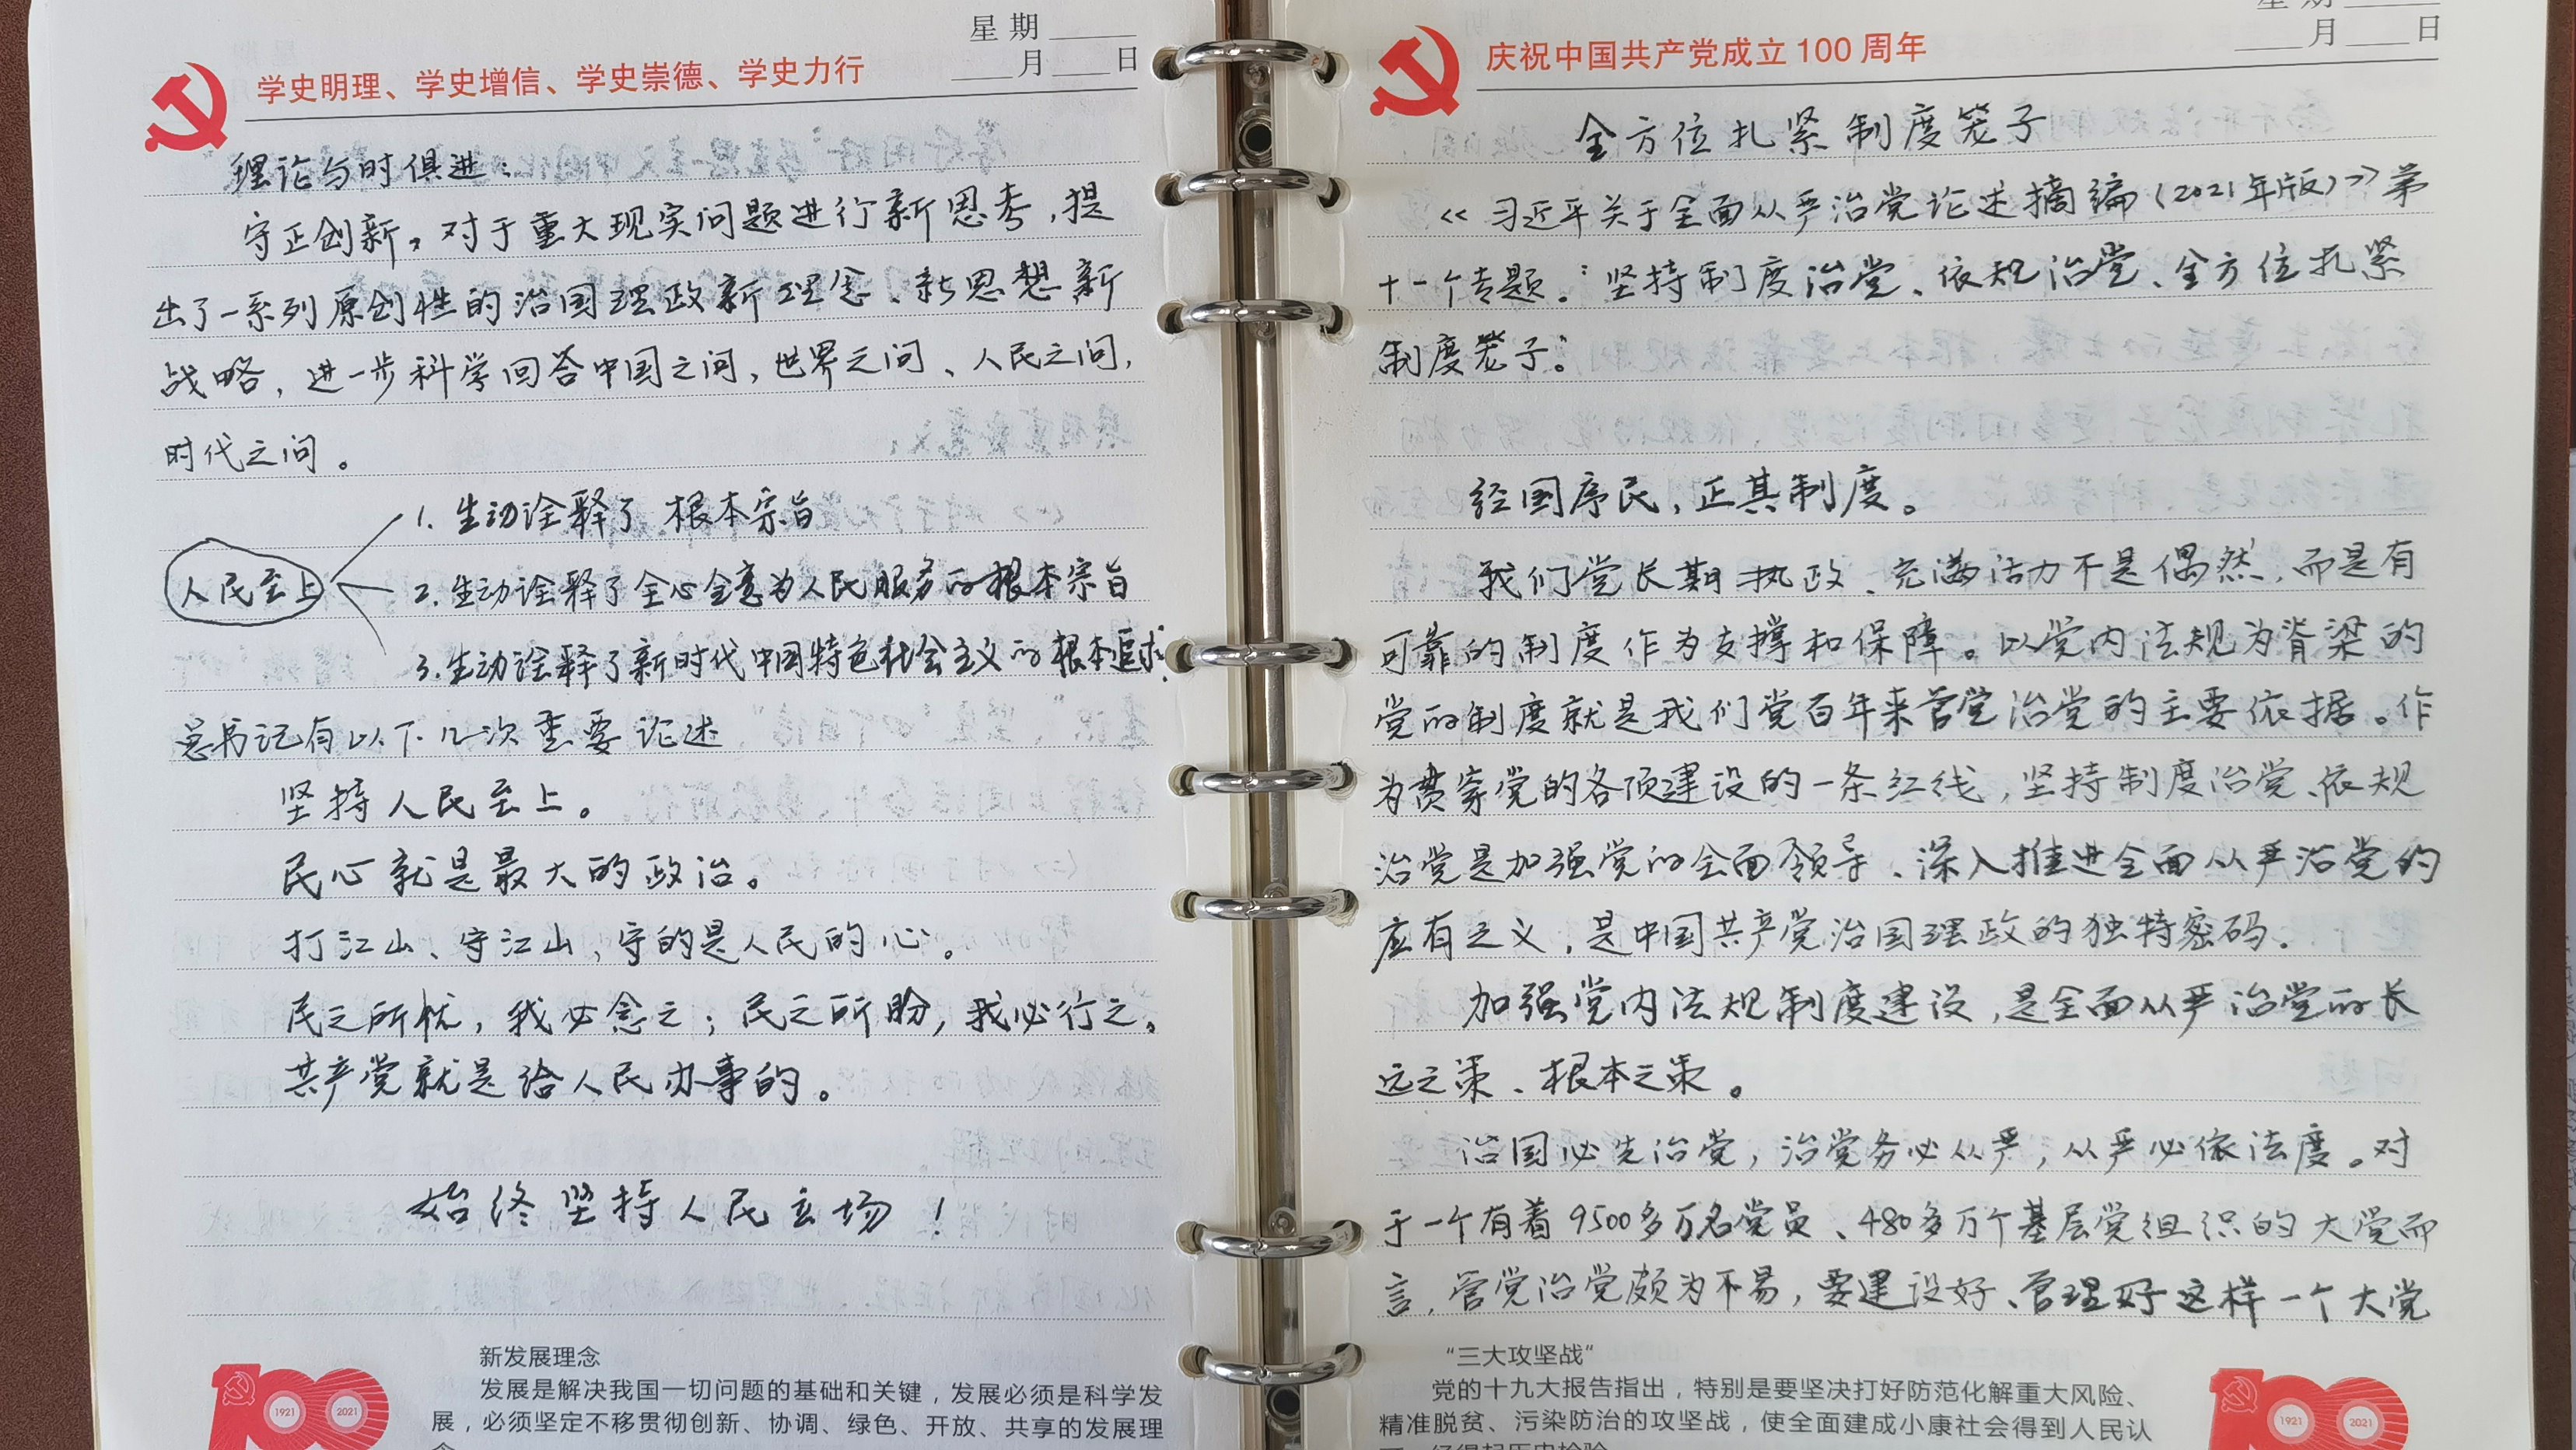 星期
月 日
学史明理、学史增信、学史崇德、学史力行
理论与时俱进：
守正创新。对于重大现实问题进行新思考，提
出了一系列原创性的治国理政新理念、新思想新
战略，进一步科学回答中国之问，世界之问、人民之问，
时代之问。
1. 生动诠释了 根本宗旨
人民至上
2. 生动诠释了全心全意为人民服务的根本宗旨
3. 生动诠释了新时代中国特色社会主义的根本追求
总书记有以下几次重要论述
坚持人民至上。
民心就是最大的政治。
打江山、守江山，守的是人民的心。
民之所忧，我必念之；民之所盼，我必行之。
共产党就是给人民办事的。
始终坚持人民立场！
新发展理念
发展是解决我国一切问题的基础和关键，发展必须是科学发
展，必须坚定不移贯彻创新、协调、绿色、开放、共享的发展理
1921 2021
星期
月 日
庆祝中国共产党成立100周年
全方位扎紧制度笼子
《习近平关于全面从严治党论述摘编（2021年版）》第
十一个专题。“坚持制度治党、依规治党、全方位扎紧
制度笼子。”
经国序民，正其制度。
我们党长期执政、充满活力不是偶然，而是有
可靠的制度作为支撑和保障。以党内法规为脊梁的
党的制度就是我们党百年来管党治党的主要依据。作
为贯穿党的各项建设的一条红线，坚持制度治党、依规
治党是加强党的全面领导、深入推进全面从严治党的
应有之义，是中国共产党治国理政的独特密码。
加强党内法规制度建设，是全面从严治党的长
远之策、根本之策。
治国必先治党，治党务必从严，从严必依法度。对
于一个有着9500多万名党员、480多万个基层党组织的大党而
言，管党治党颇为不易，要建设好、管理好这样一个大党
“三大攻坚战”
党的十九大报告指出，特别是要坚决打好防范化解重大风险、
精准脱贫、污染防治的攻坚战，使全面建成小康社会得到人民认
1921 2021